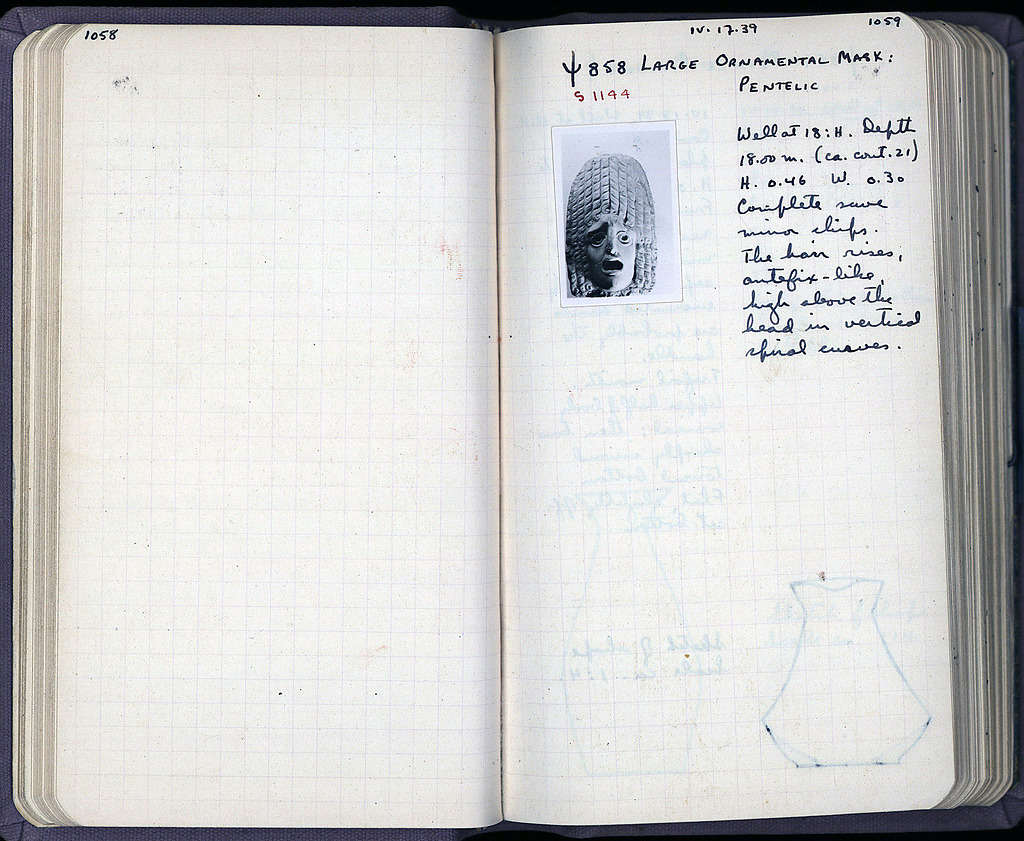 1058
1059
IV.17.39
Ψ 858 LARGE ORNAMENTAL MASK:
PENTELIC
S 1144
Well at 18:H. Depth
18.00 m. (ca. cont. 21)
H. 0.46 W. 0.30
Complete save
minor chips.
The hair rises,
antefix-like,
high above the
head in vertical
spiral curves.